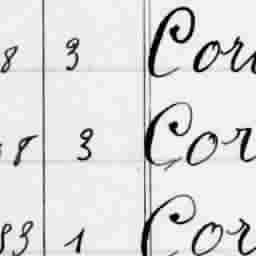 8 3 Cor
8 3 Cor
93 1 Cor